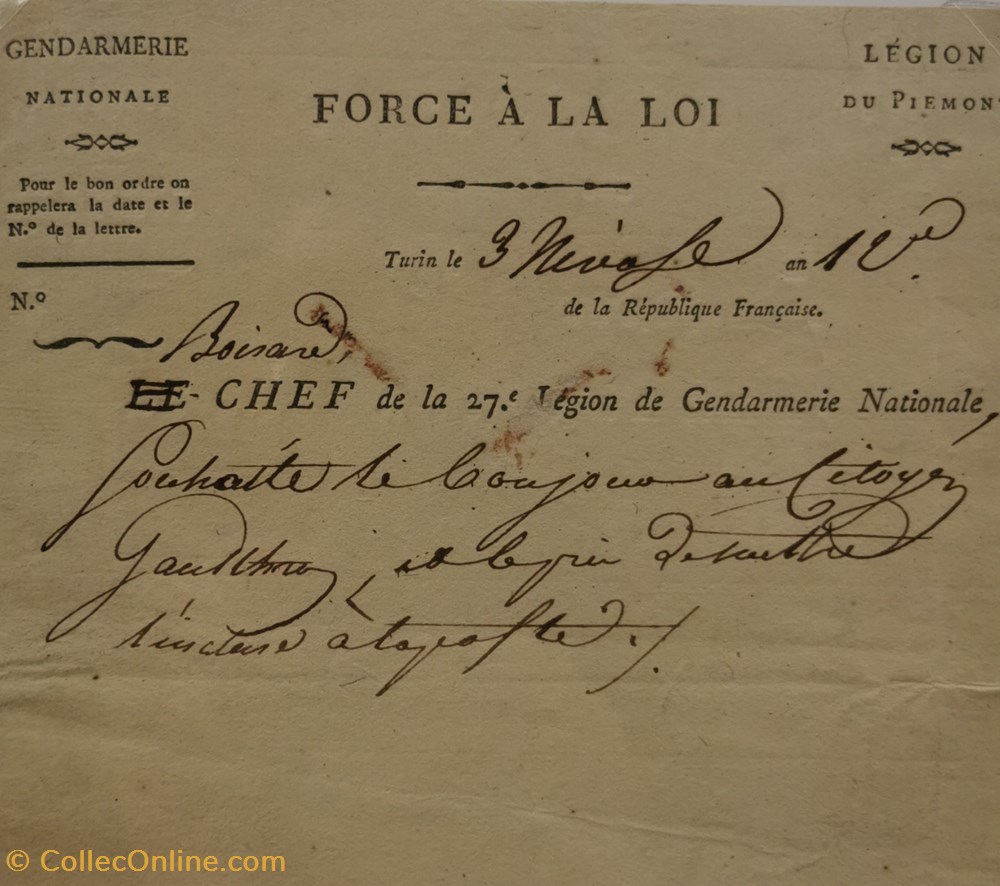 GENDARMERIE
NATIONALE
Pour le bon ordre on
rappelera la date et le
N.º de la lettre.
N.º
FORCE À LA LOI
LÉGION
DU PIEMON
Turin le 3 Nivose an 12e.
de la République Française.
Boisard,
LE CHEF de la 27.e Légion de Gendarmerie Nationale,
Souhaite le bonjour au Citoyen
et le prie de mettre
l'incluse a la poste ./.
© CollecOnline.com